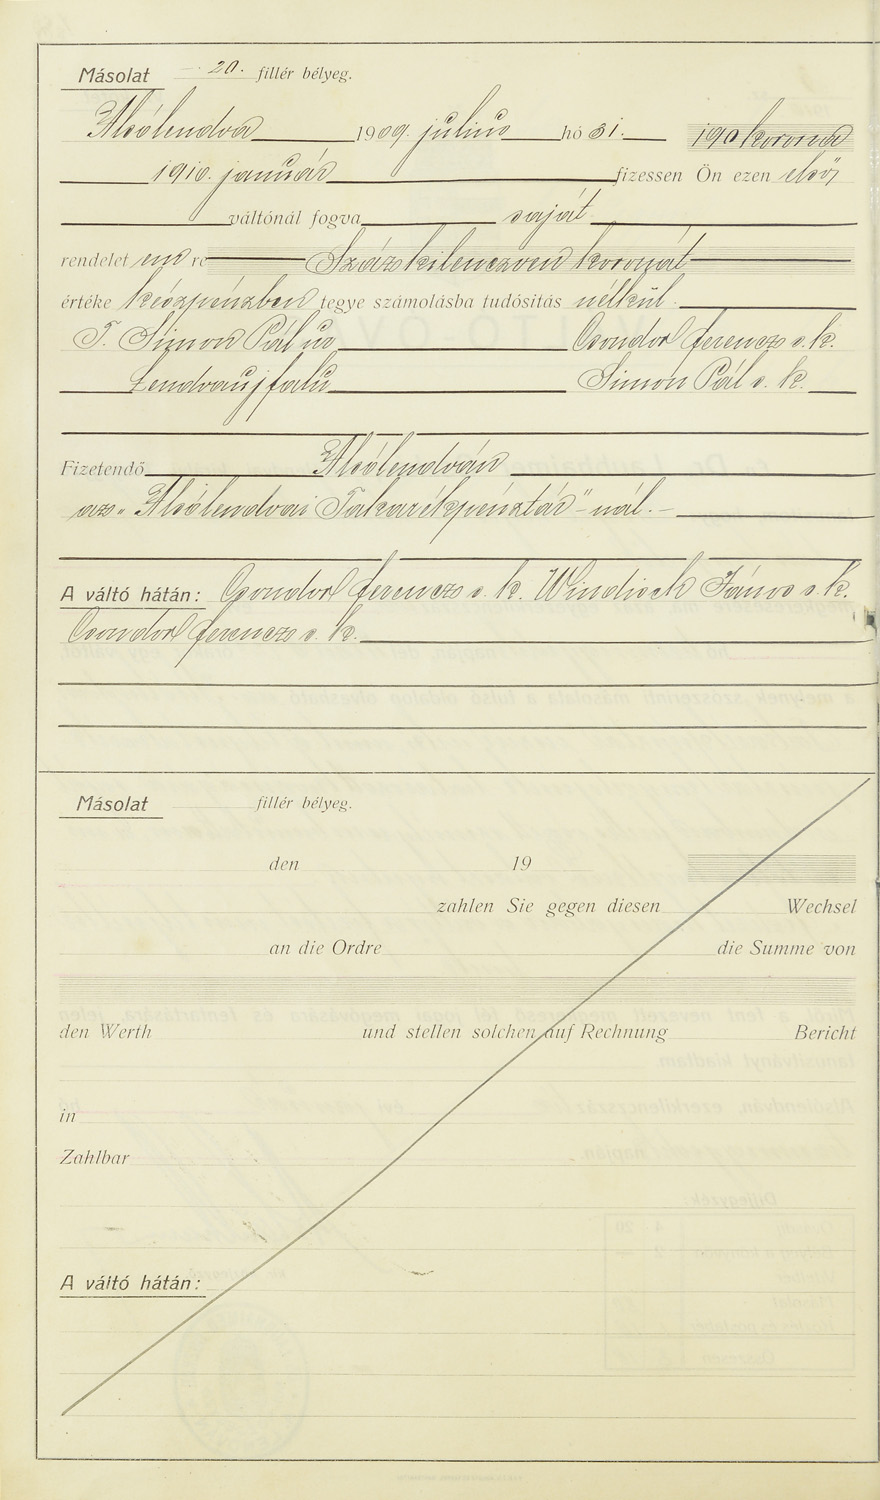 Másolat 20. fillér bélyeg.
Alsólendva 1909. julius hó 31. 190 korona
1910. január fizessen Ön ezen első
váltónál fogva saját
rendelet em re Százkilenczven koronát
értéke készpénzben tegye számolásba tudósítás nélkül.
T. Simon Pál úr Csondor Ferencz s. k.
Lendvaujfalu Simon Pál s. k.
Fizetendő Alsólendván
az „Alsólendvai Takarékpénztár"-nál.-
A váltó hátán: Csondor Ferencz s. k. Windisch János s. k.
Csondor Ferencz s. k.
Másolat fillér bélyeg.
den 19
zahlen Sie gegen diesen Wechsel
an die Ordre die Summe von
den Werth und stellen solchen auf Rechnung Bericht
in
Zahlbar
A váltó hátán: